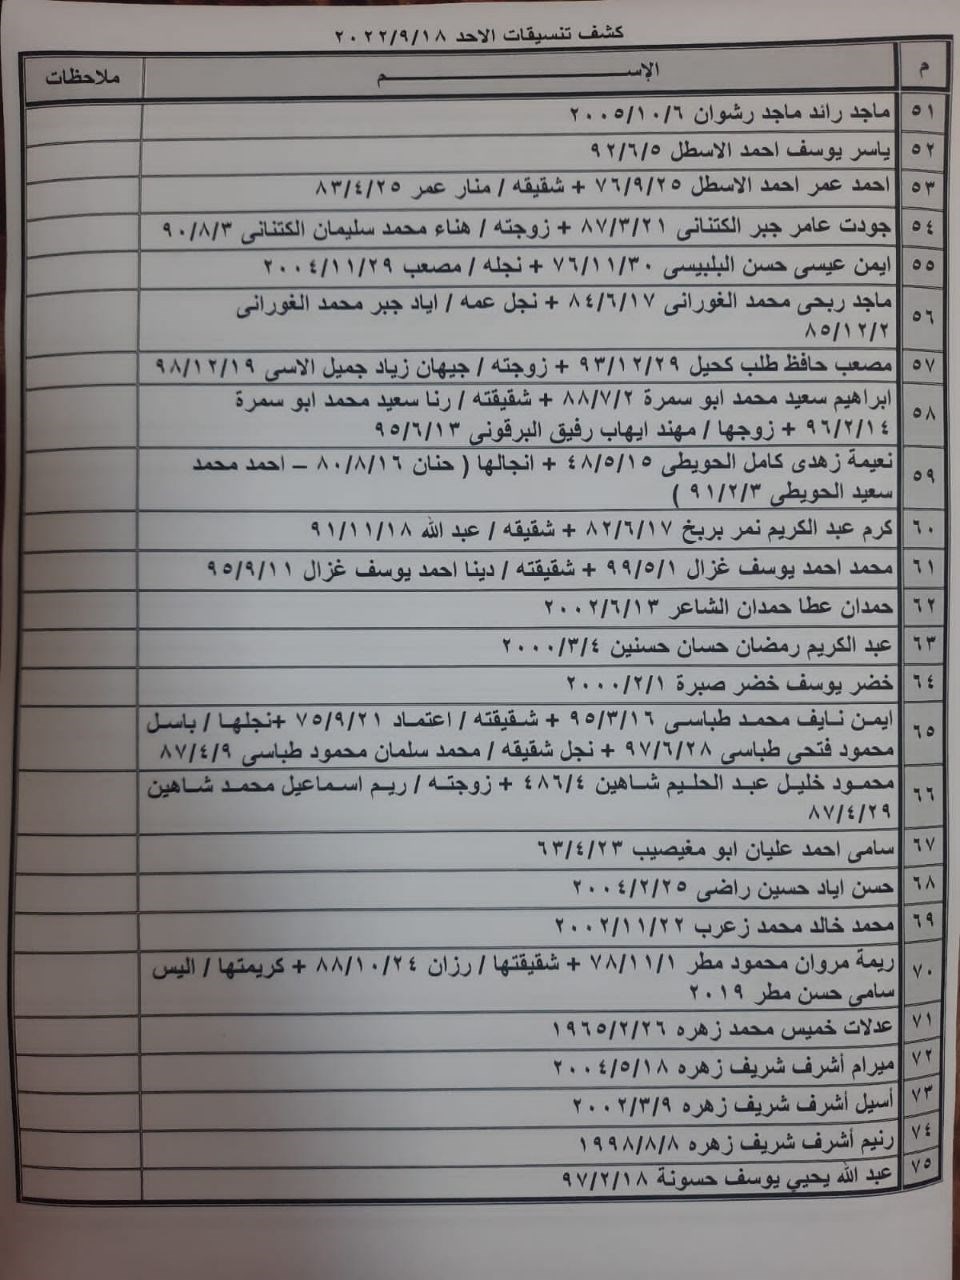 كشف تنسيقات الاحد ٢٠٢٢/٩/١٨
م الإســـــم ملاحظات
٥١ ماجد رائد ماجد رشوان ٢٠٠٥/١٠/٦
٥٢ ياسر يوسف احمد الاسطل ٩٢/٦/٥
٥٣ احمد عمر احمد الاسطل ٧٦/٩/٢٥ + شقيقه / منار عمر ٨٣/٤/٢٥
٥٤ جودت عامر جبر الكتنانى ٨٧/٣/٢١ + زوجته / هناء محمد سليمان الكتنانى ٩٠/٨/٣
٥٥ ايمن عيسى حسن البلبيسى ٧٦/١١/٣٠ + نجله / مصعب ٢٠٠٤/١١/٢٩
٥٦ ماجد ربحى محمد الغورانى ٨٤/٦/١٧ + نجل عمه / اياد جبر محمد الغورانى
٨٥/١٢/٢
٥٧ مصعب حافظ طلب كحيل ٩٣/١٢/٢٩ + زوجته / جيهان زياد جميل الاسى ٩٨/١٢/١٩
٥٨ ابراهيم سعيد محمد ابو سمرة ٨٨/٧/٢ + شقيقته / رنا سعيد محمد ابو سمرة
٩٦/٢/١٤ + زوجها / مهند ايهاب رفيق البرقونى ٩٥/٦/١٣
٥٩ نعيمة زهدى كامل الحويطى ٤٨/٥/١٥ + انجالها ( حنان ٨٠/٨/١٦ – احمد محمد
سعيد الحويطى ٩١/٢/٣ )
٦٠ كرم عبد الكريم نمر بربخ ٨٢/٦/١٧ + شقيقه / عبد الله ٩١/١١/١٨
٦١ محمد احمد يوسف غزال ٩٩/٥/١ + شقيقته / دينا احمد يوسف غزال ٩٥/٩/١١
٦٢ حمدان عطا حمدان الشاعر ٢٠٠٢/٦/١٣
٦٣ عبد الكريم رمضان حسان حسنين ٢٠٠٠/٣/٤
٦٤ خضر يوسف خضر صبرة ٢٠٠٠/٢/١
٦٥ ايمن نايف محمد طباسى ٩٥/٣/١٦ + شقيقته / اعتماد ٧٥/٩/٢١ +نجلها / باسل
محمود فتحى طباسى ٩٧/٦/٢٨ + نجل شقيقه / محمد سلمان محمود طباسى ٨٧/٤/٩
٦٦ محمود خليل عبد الحليم شاهين ٤٨٦/٤ + زوجته / ريم اسماعيل محمد شاهين
٨٧/٤/٢٩
٦٧ سامى احمد عليان ابو مغيصيب ٦٣/٤/٢٣
٦٨ حسن اياد حسين راضى ٢٠٠٤/٢/٢٥
٦٩ محمد خالد محمد زعرب ٢٠٠٢/١١/٢٢
٧٠ ريمة مروان محمود مطر ٧٨/١١/١ + شقيقتها / رزان ٨٨/١٠/٢٤ + كريمتها / اليس
سامى حسن مطر ٢٠١٩
٧١ عدلات خميس محمد زهره ١٩٦٥/٢/٢٦
٧٢ ميرام أشرف شريف زهره ٢٠٠٤/٥/١٨
٧٣ أسيل أشرف شريف زهره ٢٠٠٢/٣/٩
٧٤ رنيم أشرف شريف زهره ١٩٩٨/٨/٨
٧٥ عبد الله يحيي يوسف حسونة ٩٧/٢/١٨